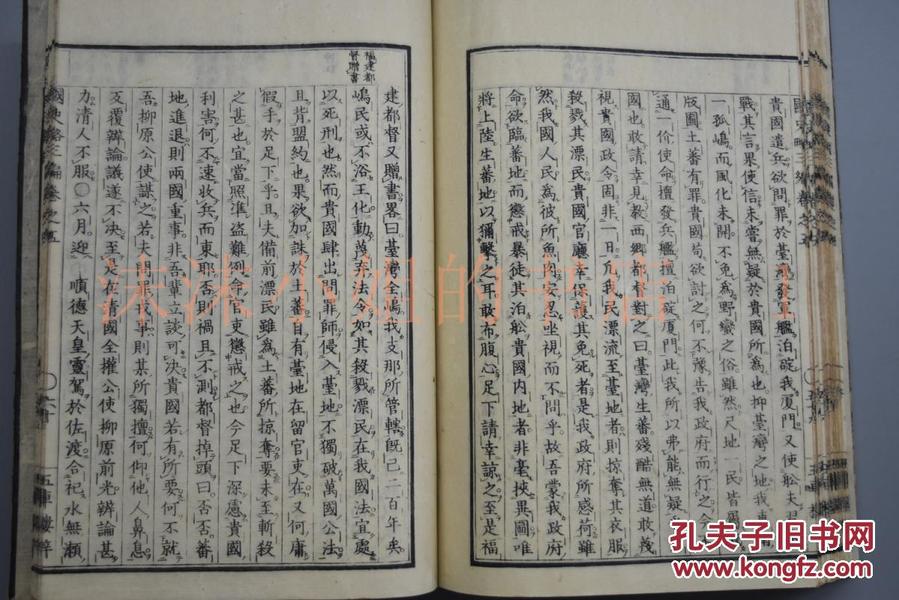 貴國遣兵欲問罪於臺灣發軍艦泊碇我厦門又使舩夫
戰其言果使信未嘗無疑於貴國所為也抑臺灣之地我
一孤嶋而風化未開不免為野蠻之俗雖然尺地一民皆
版圖土蕃有罪貴國苟欲討之何不豫告我政府而行之
通一价使命擅發兵艦擅泊碇厦門此我所以弗能無疑
國也敢請幸見敎西郷都督對之曰臺灣生蕃殘酷無道敢蔑
視貴國政令固非一日危我民漂流至臺地者則掠奪其衣服
殺戮其漂民貴國官廳幸保護其免死者是我政府所感荷雖
然我國人民為彼所魚肉安忍坐視而不問乎故吾蒙我政府
命欲臨蕃地而懲戒暴徒其泊舩貴國内地者非毫挾異圖唯
將上陸生蕃地以獮擊之耳敢布腹心足下請幸諒之至是福
福建都
督贈書
建都督又贈書畧曰臺灣全嶋我支那所管轄既已二百年矣
嶋民或不浴王化動蔑弃法令如其殺戮漂民在我國法宜處
以死刑也然而貴國肆出問罪師侵入臺地不獨破萬國公法
且背盟約也果欲加誅於土蕃自有臺地在留官吏在又何庸
假手於足下乎且夫備前漂民雖為土蕃所掠奪要未至斬殺
之甚也宜當照準盜難例命官吏懲戒之也今足下深慮貴國
利害何不速收兵而東耶否則禍且不測都督掉頭曰否否蕃
地進退則兩國重事非吾輩立談可决貴國若有所要何不就
吾柳原公使謀之若夫問罪或事則某所獨擅何仰他人鼻息
反覆辨論議遂不決至是在清國全權公使柳原前光辨論甚
力清人不服〇六月迎 順德天皇靈駕於佐渡合祀水無瀬
國史略三編卷之五
沫沫小姐的书店
孔夫子旧书网
www.kongfz.com